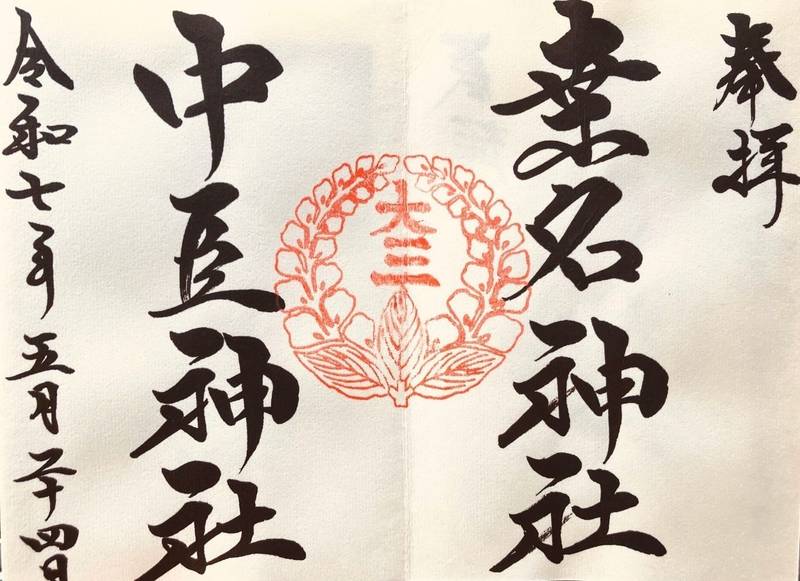 奉拝
桑名神社
大三
中臣神社
令和七年五月二十四日